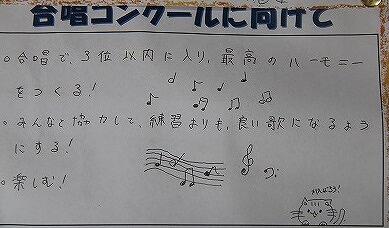 合唱コンクールに向けて
。合唱で、3位以内に入り、最高のハーモニー
をつくる!
。みんなと協力して、練習よりも、良い歌になるよう
にする!
。楽しむ!
がんばろう!